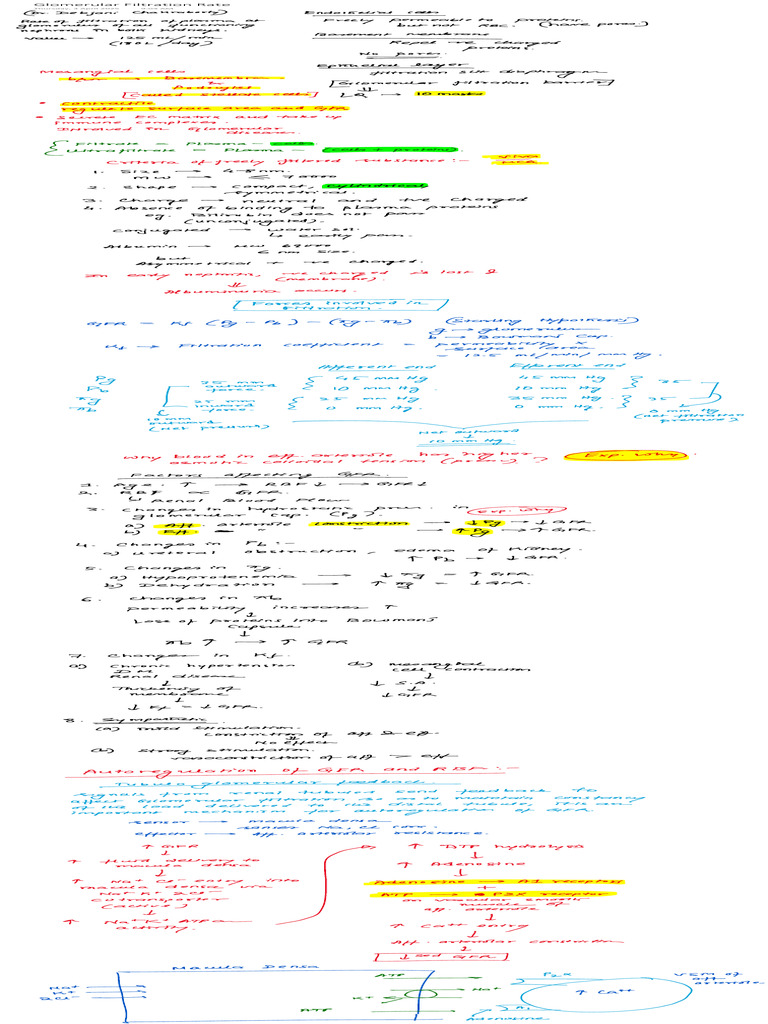 Glomerular Filtration Rate
(Dr. Debjani Chakraborty)
Rate of filtration of plasma at
glomerulus of all functioning
nephrons in both kidneys.
Value → 125 ml/min
(180L/day)
Endothelial cells
Freely permeable to proteins
but not RBC. (have pores)
Basement membrane
Repel -ve charged
proteins.
No pores.
Epithelial layer
filtration slit diaphragm
Glomerular filtration barrier
LQ → 10 marks
Mesangial cells
b/w → Basement m
&
Podocytes
Called stellate cells
• Contractile
regulate surface area and GFR
• Secrete EC matrix and take up
immune complexes.
Involved in glomerular
disease.
{ Filtrate = Plasma - cells
Ultrafiltrate = Plasma - cells & proteins
Criteria of freely filtered substance:-
VIVA
MCQ
1. Size → 4-8 nm.
MW → ≤ 70000
2. Shape → compact, cylindrical
symmetrical.
3. Charge → neutral and +ve charged
4. Absence of binding to plasma proteins
eg. Bilirubin does not pass
(unconjugated).
Conjugated → water sol.
↳ easily pass.
Albumin → MW 69000
6 nm size.
but
Asymmetrical & -ve charged.
In early nephritis, -ve charged is lost &
(membrane)
⇓
Albuminuria occurs.
Forces Involved in
Filtration.
GFR = Kf (Pg - Pb) - (πg - πb) (Starling Hypothesis)
g → glomerular
b → Bowman's Cap.
Kf → Filtration coefficient = Permeability x
Surface Area
= 12.5 ml/min/mm Hg.
Afferent end Efferent end
Pg 45 mm Hg 45 mm Hg
Pb 10 mm Hg 10 mm Hg
πg 25 mm Hg 35 mm Hg
πb 0 mm Hg 0 mm Hg
35 mm
outward
force.
25 mm
inward
force.
10 mm
outward
(net pressure)
35
35
0 mm Hg
(net filtration
pressure)
Net outward
↓
10 mm Hg
Why blood in eff. arteriole has higher
osmotic colloidal tension (press.) ? Exp. why.
Factors affecting GFR.
1. Age: ↑ → RBF ↓ → GFR ↓
2. RBF ∝ GFR.
↳ Renal Blood Flow
3. Changes in hydrostatic press. in
glomerular cap. (Pg)
Exp. why
a) Aff arteriole constriction → ↓ Pg → ↓ GFR
b) Eff. — " — " → ↑ Pg → ↑ GFR.
4. Changes in Pb :-
a) Ureteral obstruction, edema of kidney.
↑ Pb → ↓ GFR.
5. Changes in πg.
a) Hypoproteinemia → ↓ πg = ↑ GFR.
b) Dehydration → ↑ πg = ↓ GFR.
6. Changes in πb
Permeability increases ↑
↓
Loss of proteins into Bowmans
Capsule
↓
πb ↑ → ↑ GFR
7. Changes in Kf.
a) Chronic hypertension
DM
Renal disease
↓
Thickening of
membrane
↓
↓ Kf = ↓ GFR.
(b) Mesangial
cell contraction
↓
↓ S.A.
↓
↓ GFR
8. Sympathetic.
(a) Mild stimulation.
Constriction of aff & eff.
⇓
No effect
(b) Strong stimulation.
vasoconstriction of aff > eff
Autoregulation of GFR and RBF :-
Tubulo glomerular feedback
Signals from renal tubules send feedback to
affect glomerular filtration so as to maintain constancy
of the load delivered to the distal tubule, it is an
important mechanism for autoregulation of GFR.
Sensor → Macula densa
senses Na, Cl conc.
effector → Aff. arteriolar resistance.
↑ GFR
↓
↑ fluid delivery to
macula densa
↓
↑ Na+ Cl- entry into
macula densa via
Na+ K+ 2Cl-
cotransporter
(active)
↓
↑ Na+ K+ ATPase
activity.
↑ ATP hydrolysis
↓
↑ Adenosine
↓
Adenosine → A1 receptors
+
ATP → P2X receptor
on vascular smooth
muscle of
aff. arteriole
↓
↑ Ca++ entry
↓
Aff. arteriolar constriction
↓
↓sed GFR
Macula Densa
Na+
K+
2Cl-
ATP
K+
Na+
ATP
P2X
A1
Adenosine
↑ Ca++
VSM of
aff
arteriole